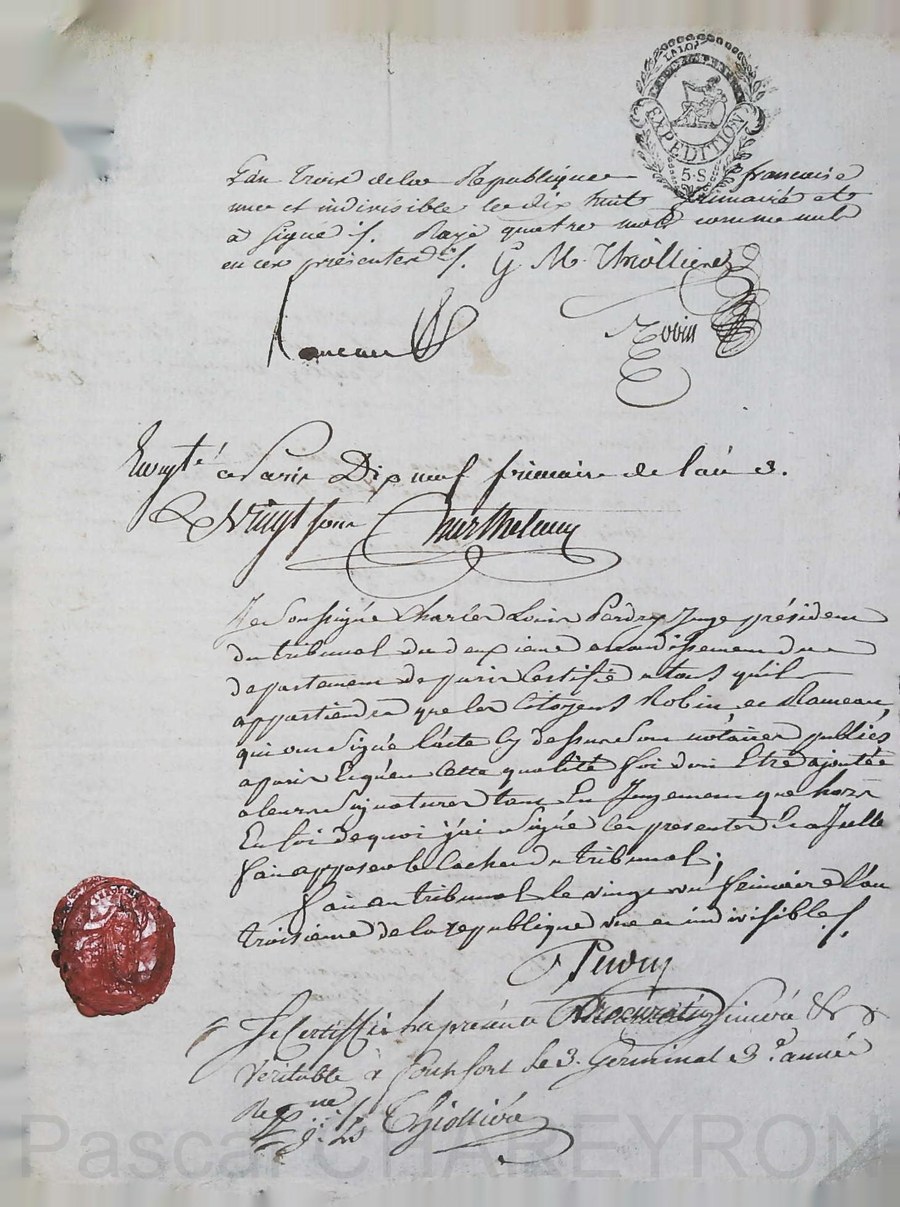 LA LOI
EXPEDITION
5.S
L'an trois de la Republique francaise
une et indivisible le dix huit frimaire et
a signé ./. Rayé quatre mots comme nuls
en ces presentes ./. G. M. Thiollier
Robin
Rameau
Enregté a Paris Dix neuf frimaire de l'an 3.
Vingt sous
Je Soussigné Charles Louis Perdry Juge président
du tribunal du deuxieme arrondissement du
departement de paris Certifie a tous qu'il
appartiendra que les Citoyens Robin et Rameau,
qui ont Signé l'acte Cy dessus Sont notaires publics
a paris Et qu'en Cette qualité foi doit Etre ajoutée
a leurs Signatures tant En Jugement que hors
En foi de quoi j'ai Signé Ces presentes Et a Icelle
fait apposer le Cachet du tribunal;
fait au tribunal le vingt un frimaire L'an
troisieme de la republique une et indivisible ./.
Perdry
Je Certiffie la présente Procuration Sincère &
Veritable à le 3. Germinal 3.e année